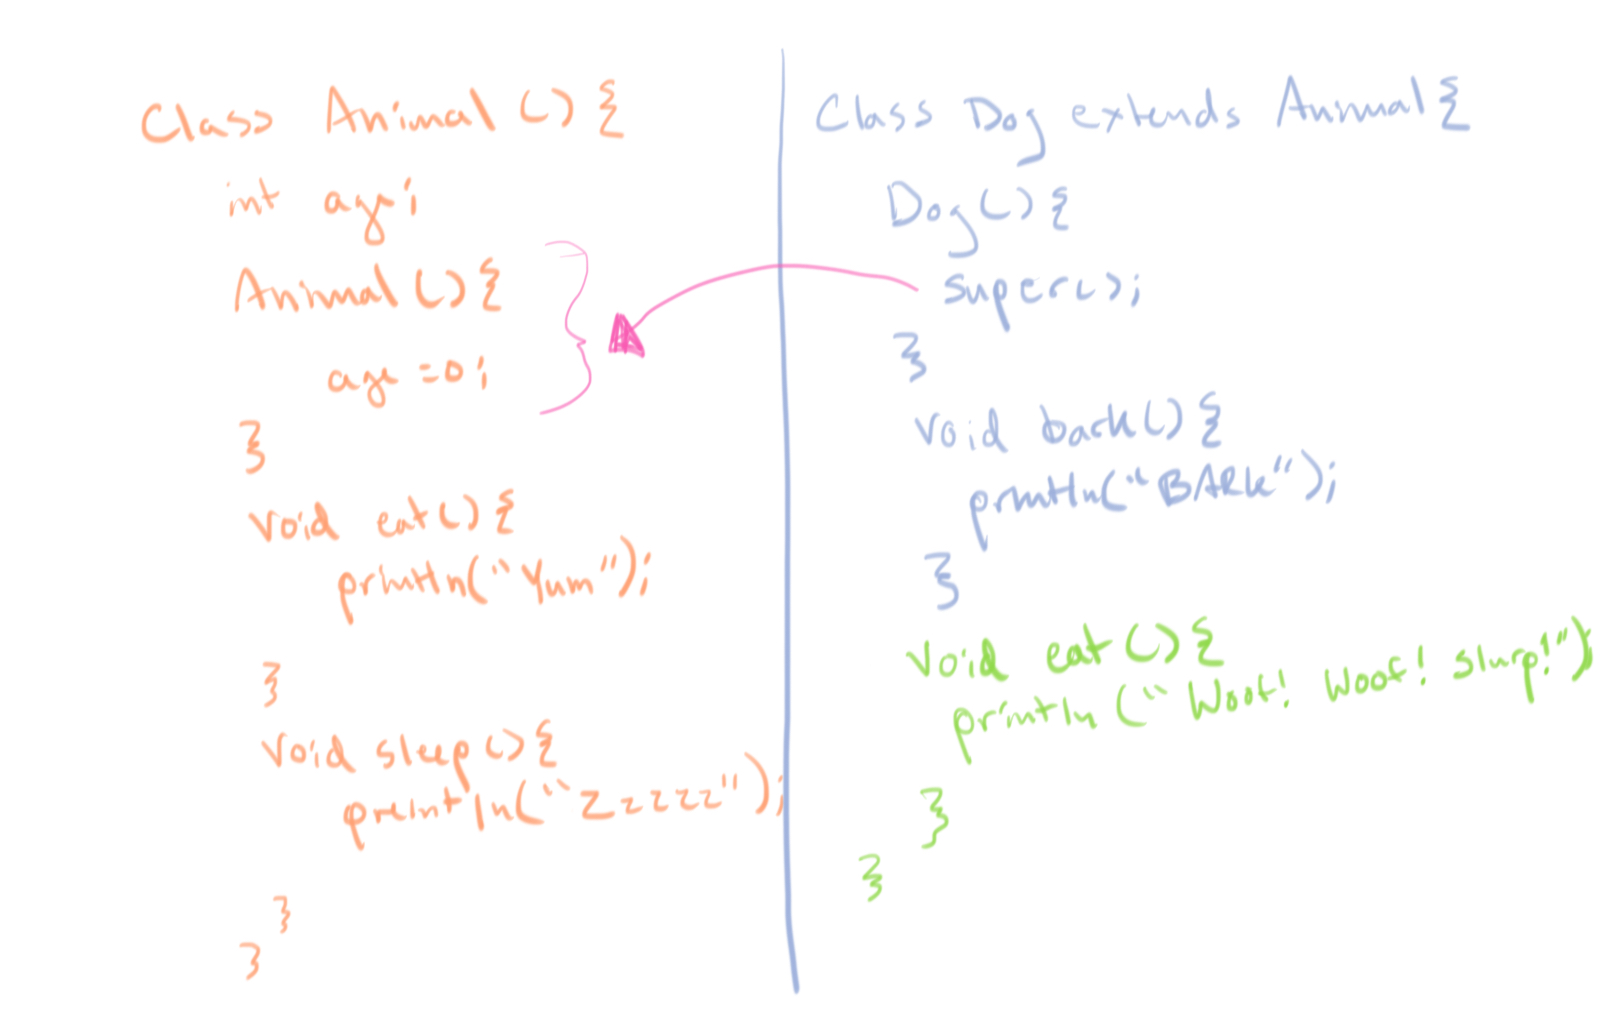 Class Animal () {
int age;
Animal () {
age = 0;
}
void eat () {
println("Yum");
}
void sleep () {
println("Zzzzz");
}
}
Class Dog extends Animal {
Dog () {
super();
}
void bark () {
println("BARK");
}
void eat () {
println ("Woof! Woof! slurp!");
}
}